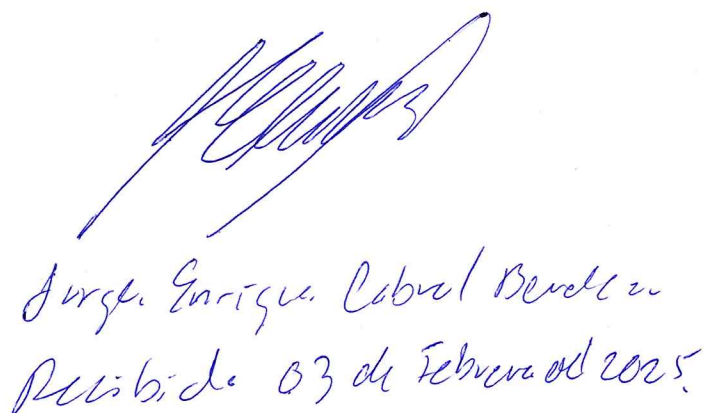 Jorge Enrique Cabral
Recibido 03 de Febrero del 2025.